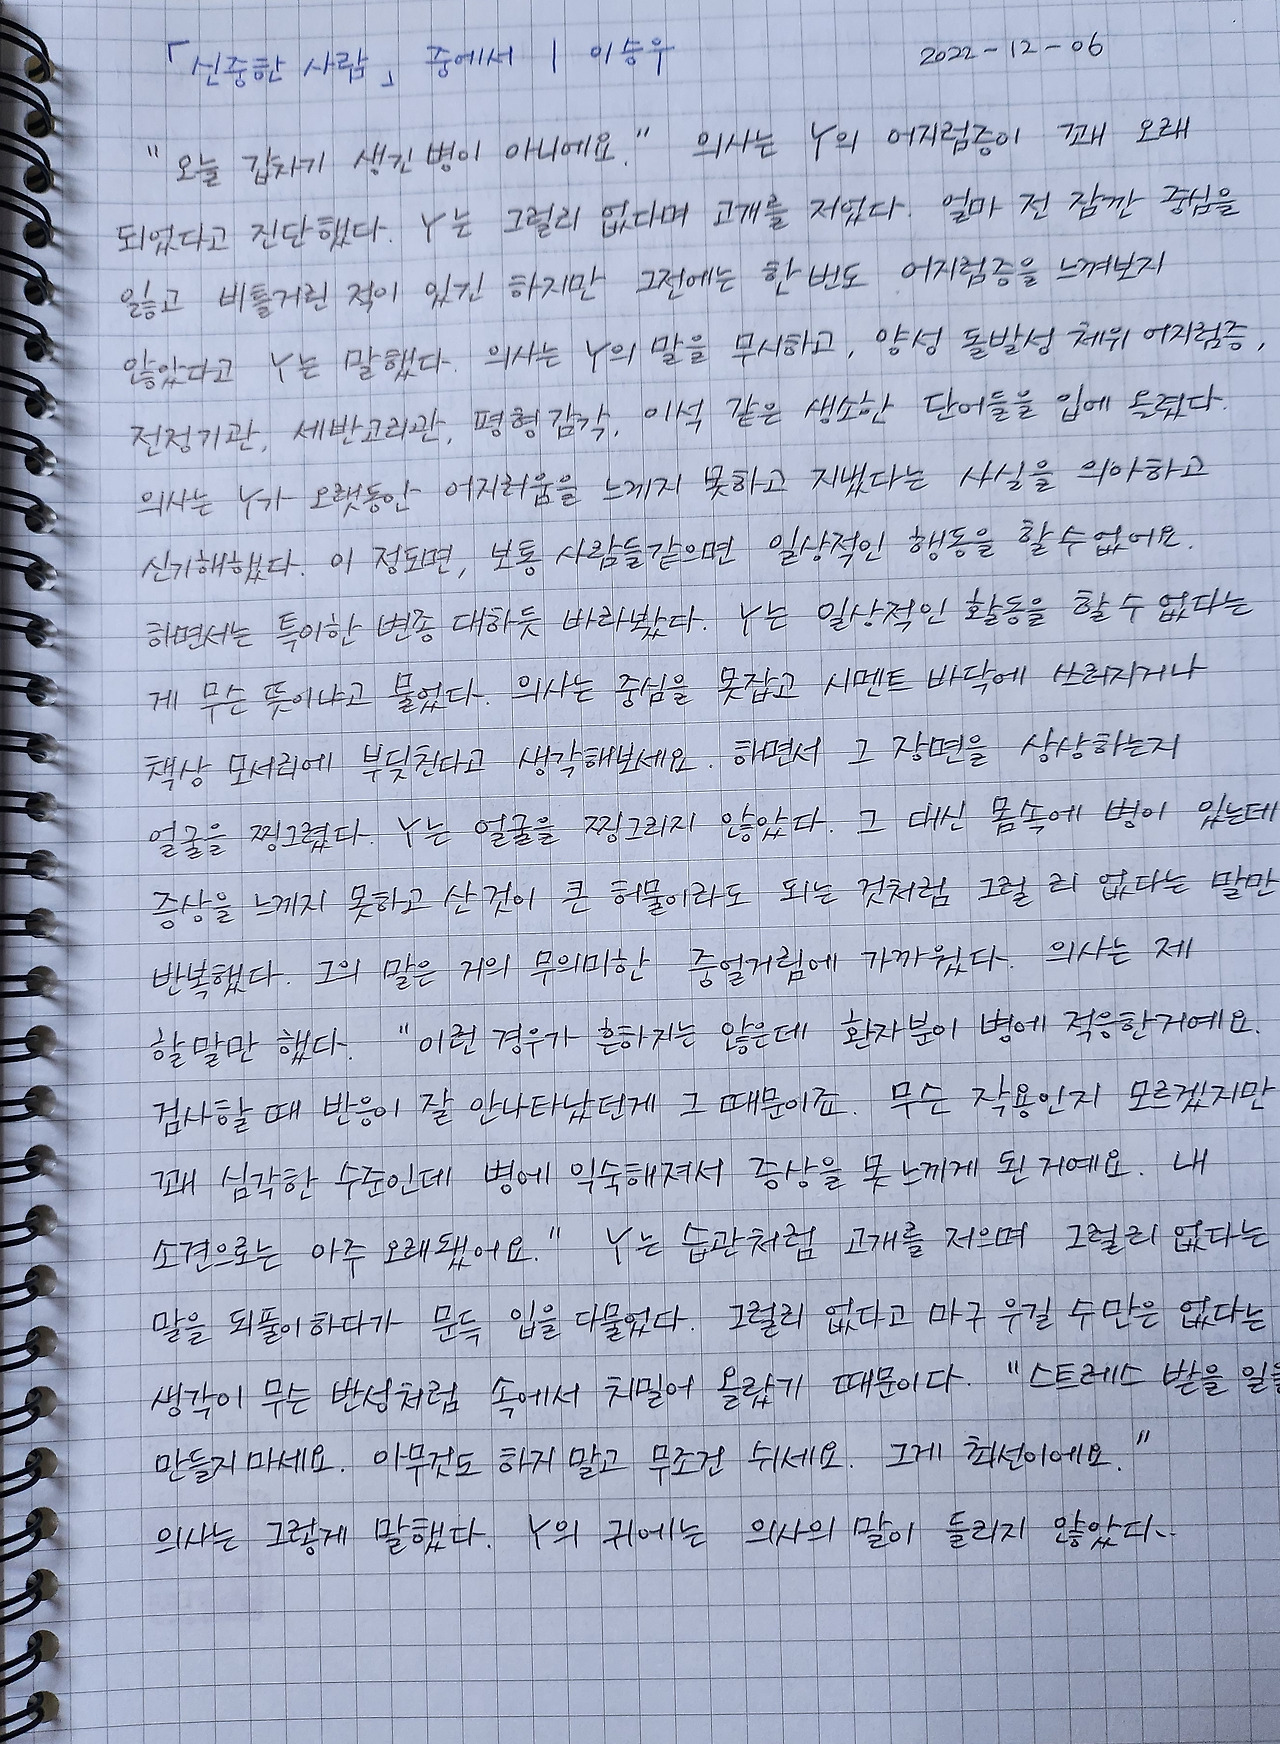 「신중한 사람」 중에서 | 이승우 2022-12-06
"오늘 갑자기 생긴 병이 아니에요." 의사는 Y의 어지럼증이 꽤 오래
되었다고 진단했다. Y는 그럴리 없다며 고개를 저었다. 얼마 전 잠깐 중심을
잃고 비틀거린 적이 있긴 하지만 그전에는 한 번도 어지럼증을 느껴보지
않았다고 Y는 말했다. 의사는 Y의 말을 무시하고, 양성 돌발성 체위 어지럼증,
전정기관, 세반고리관, 평형감각, 이석 같은 생소한 단어들을 입에 올렸다.
의사는 Y가 오랫동안 어지러움을 느끼지 못하고 지냈다는 사실을 의아하고
신기해했다. 이 정도면, 보통 사람들같으면 일상적인 행동을 할 수 없어요.
하면서는 특이한 변종 대하듯 바라봤다. Y는 일상적인 활동을 할 수 없다는
게 무슨 뜻이냐고 물었다. 의사는 중심을 못잡고 시멘트 바닥에 쓰러지거나
책상 모서리에 부딪친다고 생각해보세요. 하면서 그 장면을 상상하는지
얼굴을 찡그렸다. Y는 얼굴을 찡그리지 않았다. 그 대신 몸속에 병이 있는데
증상을 느끼지 못하고 산 것이 큰 허물이라도 되는 것처럼 그럴 리 없다는 말만
반복했다. 그의 말은 거의 무의미한 중얼거림에 가까웠다. 의사는 제
할 말만 했다. "이런 경우가 흔하지는 않은데 환자분이 병에 적응한거예요.
검사할 때 반응이 잘 안나타났던게 그 때문이죠. 무슨 작용인지 모르겠지만
꽤 심각한 수준인데 병에 익숙해져서 증상을 못 느끼게 된 거예요. 내
소견으로는 아주 오래됐어요." Y는 습관처럼 고개를 저으며 그럴리 없다는
말을 되풀이하다가 문득 입을 다물었다. 그럴리 없다고 마구 우길 수만은 없다는
생각이 무슨 반성처럼 속에서 치밀어 올랐기 때문이다. "스트레스 받을 일을
만들지 마세요. 아무것도 하지 말고 무조건 쉬세요. 그게 최선이에요."
의사는 그렇게 말했다. Y의 귀에는 의사의 말이 들리지 않았다..